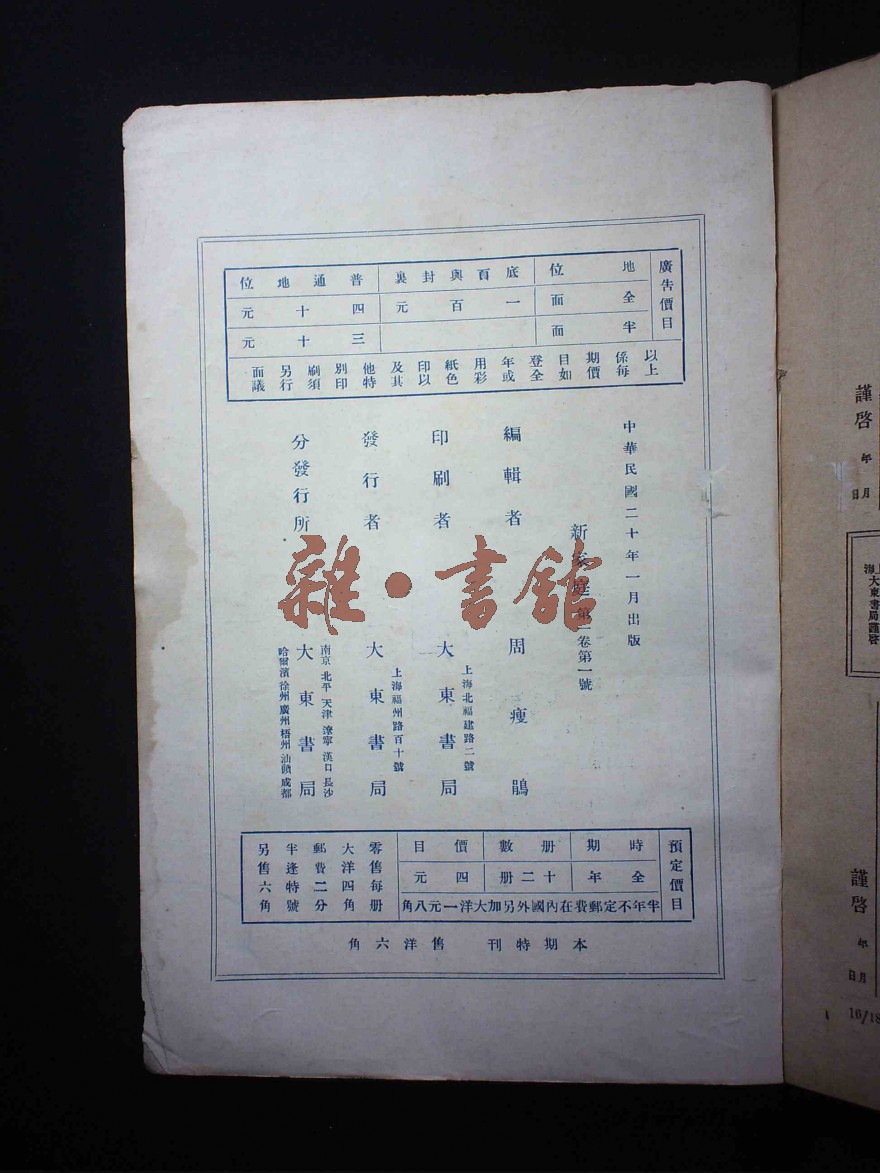 廣告價目
地位 底頁與封裏 普通地位
全面 一百元 四十元
半面 三十元
以上係每期價目如登全年或用彩色紙印以及其他特別印刷須另行面議
中華民國二十年一月出版
新家庭 第一卷第一號
編輯者 周瘦鵑
印刷者 大東書局
上海北福建路二號
發行者 大東書局
上海福州路百十號
分發行所 大東書局
南京 北平 天津 遼寧 漢口 長沙
哈爾濱 徐州 廣州 梧州 汕頭 成都
預定價目
時期 冊數 價目
全年 十二冊 四元
半年不定郵費在內國外另加大洋一元八角
零售每冊
大洋四角
郵費二分
半逢特號
另售六角
本期特刊 售洋六角
雜·書館
謹啓
年
月
日
上海大東書局謹啓
謹啓
年
月
日